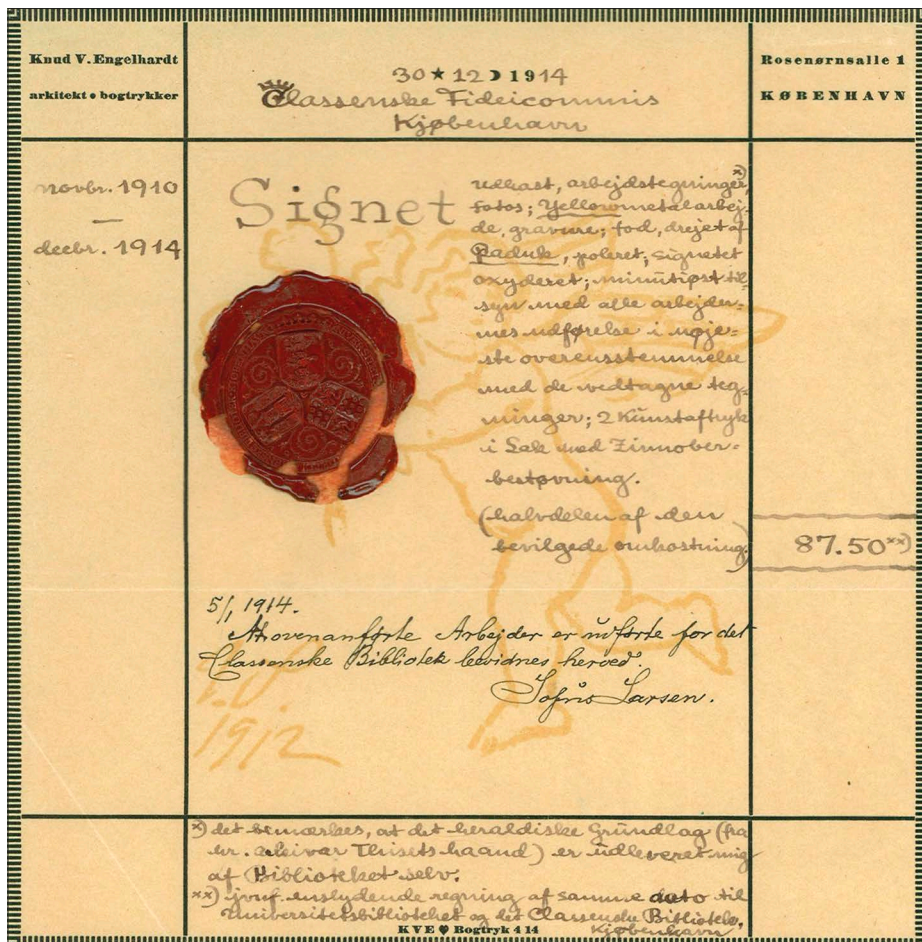 Knud V. Engelhardt
arkitekt • bogtrykker
30 ★ 12 ☽ 1914
Classenske Fideicommis
Kjøbenhavn
Rosenørnsalle 1
KØBENHAVN
novbr. 1910
—
decbr. 1914
Signet
udkast, arbejdstegninger, x)
fotos; Yellowmetalarbej-
de, gravure; fod, drejet af
Paduk, poleret; signetet
oxyderet; minutiøst til-
syn med alle arbejder-
nes udførelse i nøje-
ste overensstemmelse
med de vedtagne teg-
ninger; 2 Kunstaftryk
i Lak med Zinnober-
bestøvning.
(halvdelen af den
bevilgede omkostning)
87.50 xx)
5/1 1914.
At ovenanførte Arbejder er udførte for det
Classenske Bibliotek bevidnes herved.
Sofus Larsen.
1912
x) det bemærkes, at det heraldiske Grundlag (fra
hr. arkivar Thisets haand) er udleveret mig
af Biblioteket selv.
xx) jvnf. enslydende regning af samme dato til
Universitetsbibliotheket og det Classenske Bibliotek,
Kjøbenhavn
KVE ♥ Bogtryk 4 14